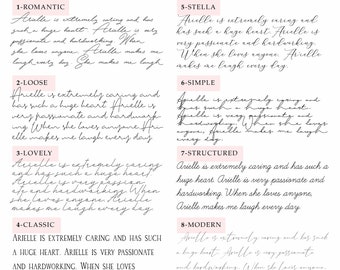 1-ROMANTIC
Arielle is extremely caring and
has such a huge heart. Arielle is very
passionate and hardworking. When
she loves anyone. Arielle makes me
laugh every day. She makes me laugh
2-LOOSE
Arielle is extremely caring and
has such a huge heart. Arielle is
very passionate and hardwork
ing. When she loves anyone. Arielle
makes me laugh every day.
3-LOVELY
Arielle is extremely caring
and has such a huge heart.
Arielle is very passion
ate and hardworking. When
she loves anyone. Arielle
makes me laugh every day.
4-CLASSIC
ARIELLE IS EXTREMELY CARING AND HAS SUCH
A HUGE HEART. ARIELLE IS VERY PASSIONATE
AND HARDWORKING. WHEN SHE LOVES
5-STELLA
Arielle is extremely caring and
has such a huge heart. Arielle is very
passionate and hardworking. When
she loves anyone. Arielle
makes me laugh every day.
6-SIMPLE
Arielle is extremely caring and
has such a huge heart.
Arielle is very passionate
and hardworking. When she loves
anyone. Arielle makes me laugh
every day.
7-STRUCTURED
Arielle is extremely caring and has such a
huge heart. Arielle is very passionate and
hardworking. When she loves anyone,
Arielle makes me laugh every day.
8-MODERN
Arielle is extremely caring and
has such a huge heart. Arielle is
very passionate and
hardworking. When she loves